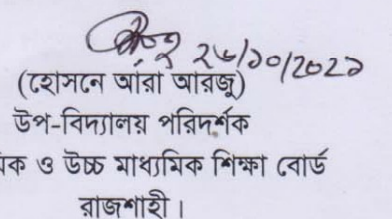 ২৬/১০/২০২১
(হোসনে আরা আরজু)
উপ-বিদ্যালয় পরিদর্শক
মিক ও উচ্চ মাধ্যমিক শিক্ষা বোর্ড
রাজশাহী।